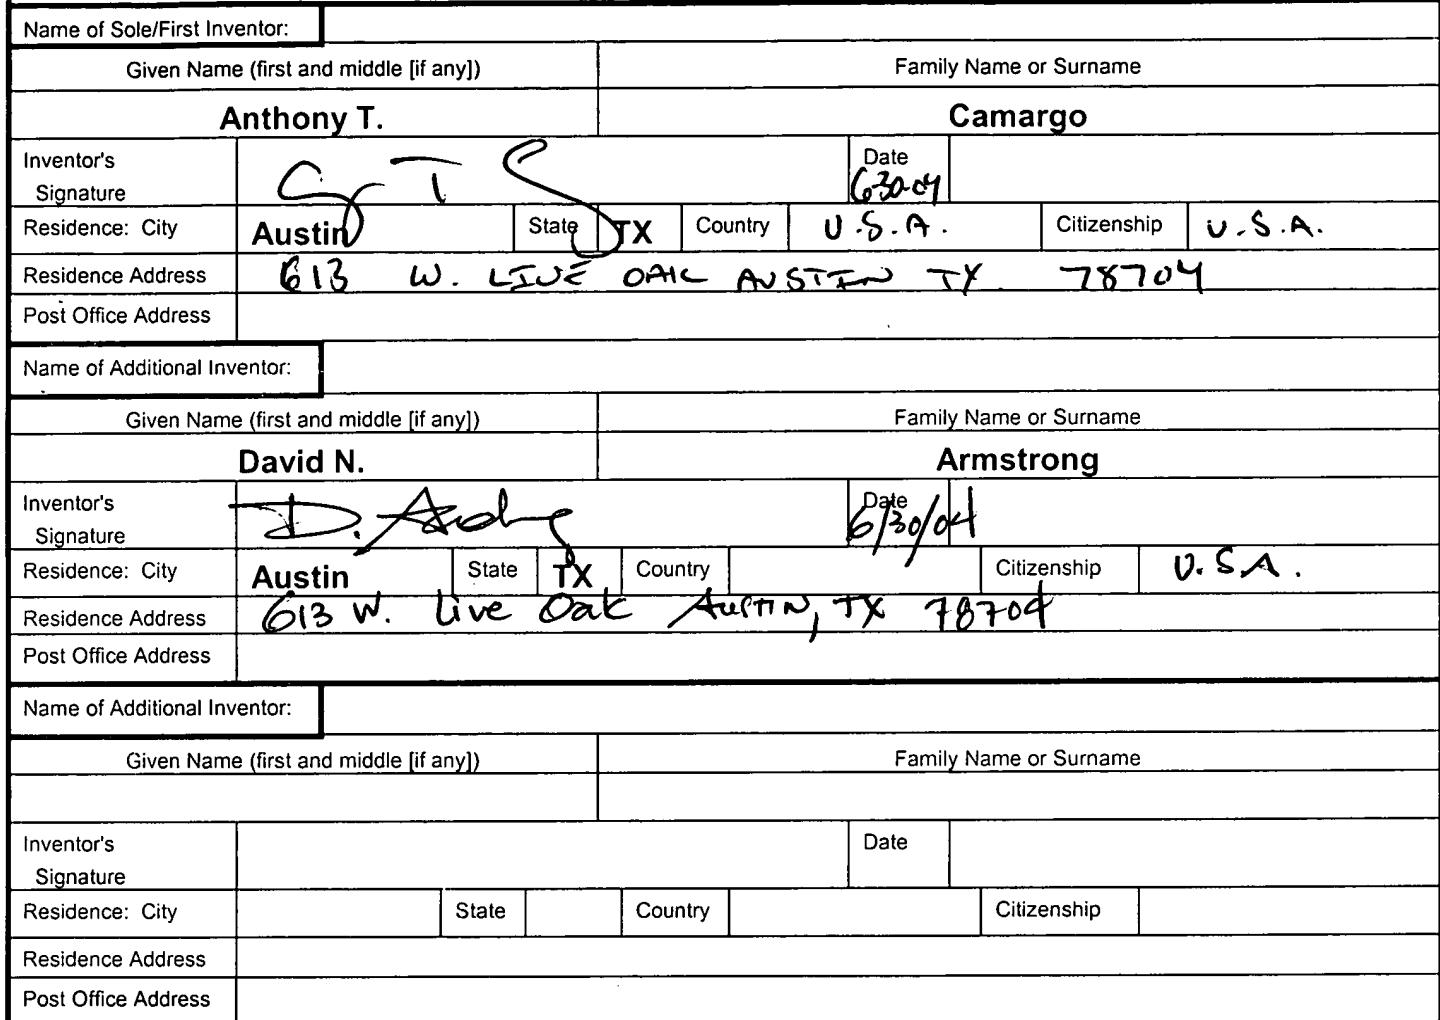 Name of Sole/First Inventor:
Given Name (first and middle [if any]) Family Name or Surname
Anthony T. Camargo
Inventor's Date
Signature 6-30-04
Residence: City Austin State TX Country U.S.A. Citizenship U.S.A.
Residence Address 613 W. LIVE OAK AUSTIN TX 78704
Post Office Address
Name of Additional Inventor:
Given Name (first and middle [if any]) Family Name or Surname
David N. Armstrong
Inventor's Date
Signature D. 6/30/04
Residence: City Austin State TX Country Citizenship U.S.A.
Residence Address 613 W. Live Oak Austin, TX 78704
Post Office Address
Name of Additional Inventor:
Given Name (first and middle [if any]) Family Name or Surname
Inventor's Date
Signature
Residence: City State Country Citizenship
Residence Address
Post Office Address